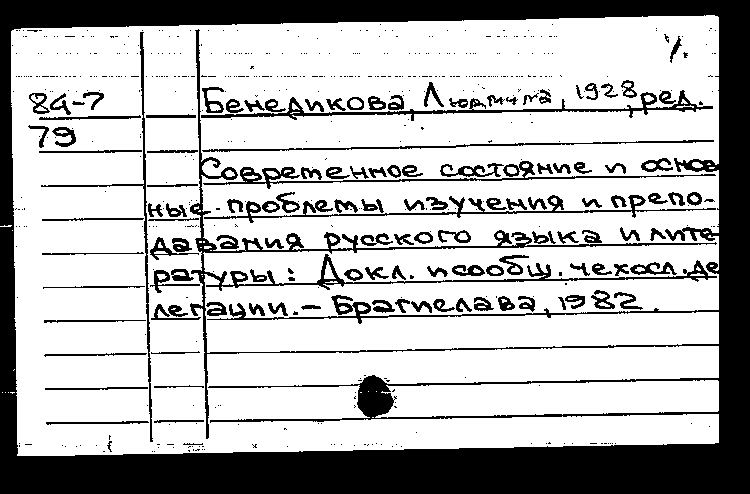 84-7 Бенедикова, Людмила, 1928, ред.
79
Современное состояние и основ
ные проблемы изучения и препо-
давания русского языка и лите-
ратуры: Докл. и сообщ. чехосл. де
легации. – Братислава, 1982.